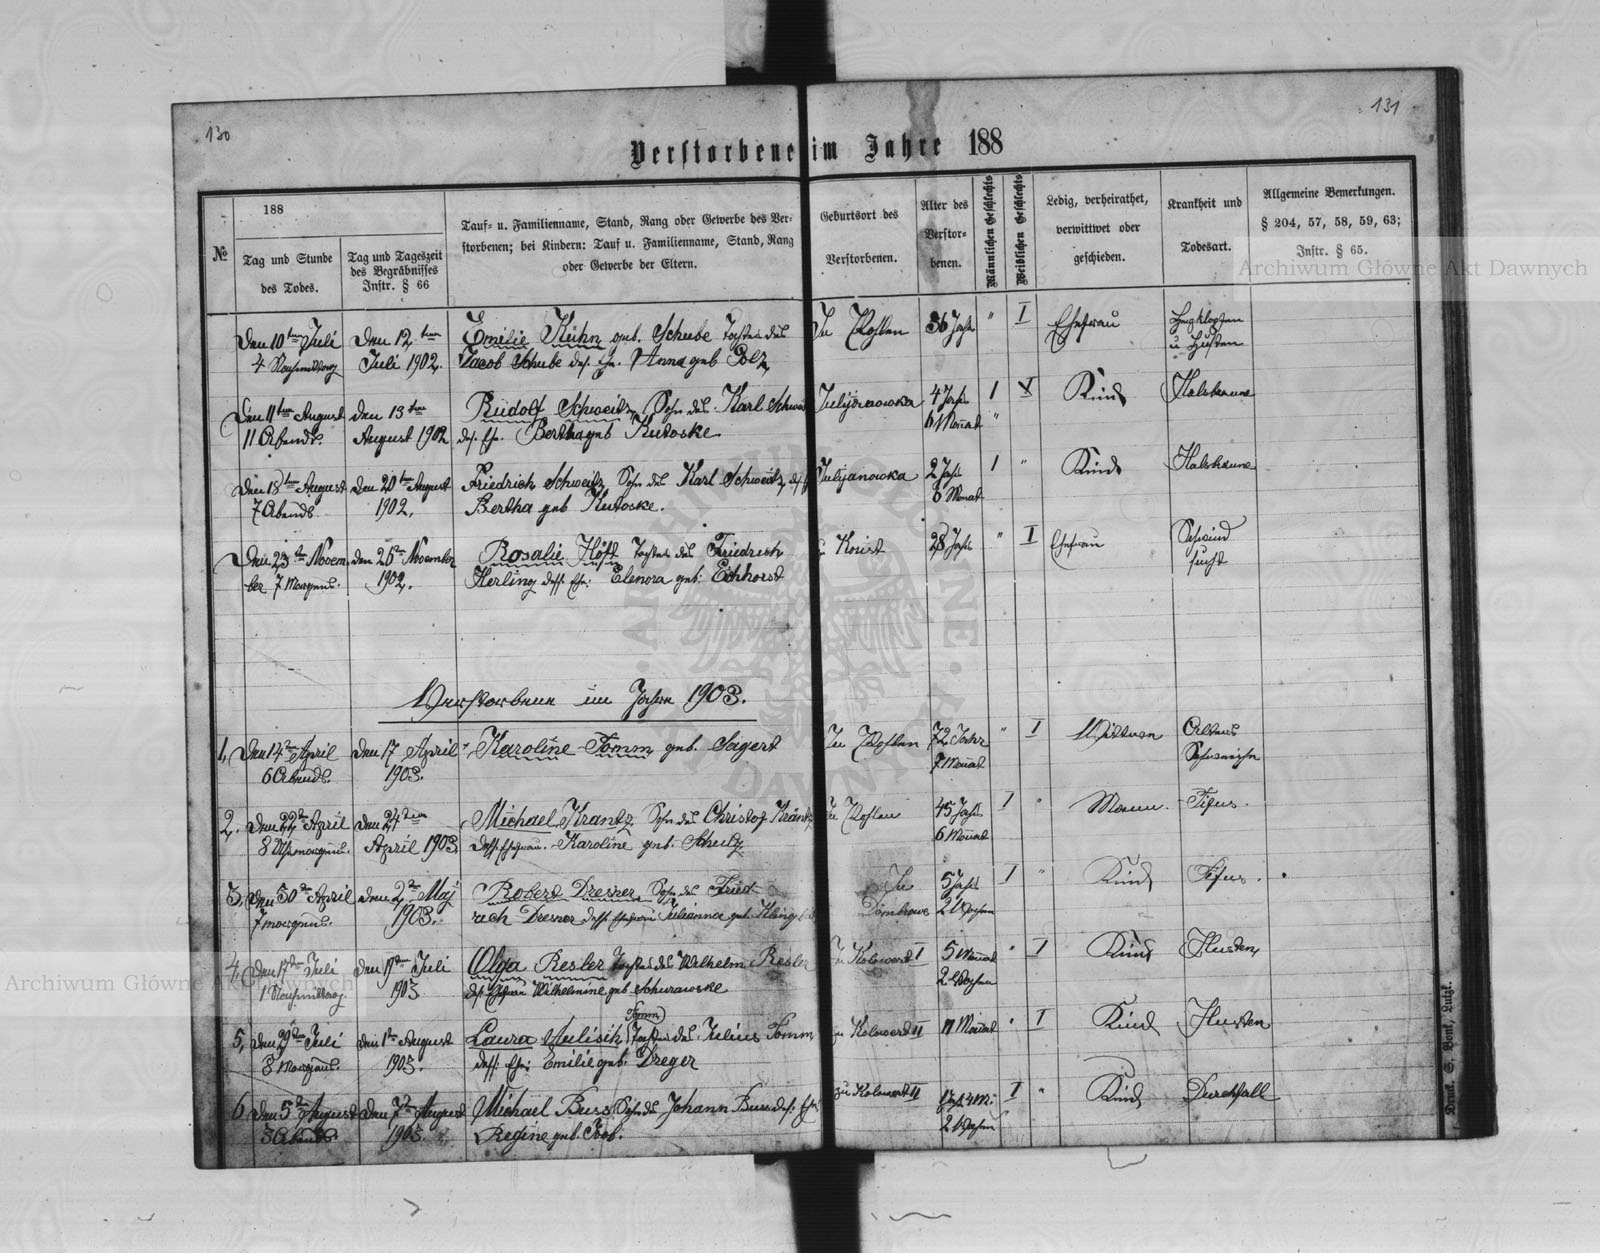 130
131
Verstorbene im Jahre 188
№
188
Tag und Stunde
des Todes.
Tag und Tageszeit
des Begräbnisses
Instr. § 66
Tauf- u. Familienname, Stand, Rang oder Gewerbe des Ver-
storbenen; bei Kindern: Tauf u. Familienname, Stand, Rang
oder Gewerbe der Eltern.
Geburtsort des
Verstorbenen.
Alter des
Verstor-
benen.
Männlichen Geschlechts
Weiblichen Geschlechts
Ledig, verheirathet,
verwittwet oder
geschieden.
Krankheit und
Todesart.
Allgemeine Bemerkungen.
§ 204, 57, 58, 59, 63;
Instr. § 65.
Den 10ten Juli
4 Nachmittag
Den 12ten
Juli 1902.
Emilie Kühn geb. Schube Tochter des
Jacob Schube des. Ehe. Anna geb Golz
In
36 Jahr
" I
Ehefrau
Herzklopfen
u Husten
Den 11ten August
11 Abends.
den 13ten
August 1902
Rudolf Schweitz Sohn des Karl
des. Ehe. Bertha geb Kutoske
Julijanowka
4 Jahr
6 Monat
1
"
Kind
Halsbräune
Den 18ten August
7 Abends
den 20ten August
1902,
Friedrich Schweitz Sohn des Karl Schweitz
Bertha geb Kutoske.
Julijanowka
2 Jahr
6 Monat
1 "
Kind
Halsbräune
Den 23ten Novem
ber 7 Morgens.
den 26ten November
1902.
Rosalie Höft Tochter des Friedrich
Herling dess. Ehe: Elenora geb: Eichhorst
28 Jahr
" I
Ehefrau
Schwind
sucht
Verstorbene im Jahre 1903.
1, Den 14ten April
6 Abends.
den 17 April
1903.
Karoline Tomm geb. Sagert
In
72 Jahr
7 Monat
" I
Wittwe
Alters
Schwäche
2, den 22ten April
den 24ten
April 1903
Michael Krantz Sohn des Christof
dess. Ehefrau. Karoline geb. Schulz
45 Jahr
6 Monat
I "
Mann.
Tifus.
3, Den 30ten April
7 morgens.
den 2ten Maj
1903.
Robert Dresner Sohn des Fried-
rich Dresner dess. Ehefrau Julianna geb.
In
5 Jahr
2 Wochen
I "
Kind
Tifus.
4, Den 17ten Juli
1 Nachmittag.
den 19ten Juli
1903
Olga Resler Tochter des Wilhelm Resler
des. Ehefrau Wilhelmine geb
Kolowert I
5 Monat
2 Wochen
" I
Kind
Husten
5, den 29ten Juli
8 Morgens.
den 1ten August
1903.
Tomm
Laura Tochter des Julius Tomm
dess. Ehe: Emilie geb: Dreger
zu Kolowert II
11 Monat
" I
Kind
Husten
6 Den 5ten August
3 Abends
den 7ten August
1903.
Michael Buss Sohn des Johann Buss des. Ehe
Regine geb.
zu Kolowert II
2 Wochen
I "
Kind
Durchfall
Archiwum Główne Akt Dawnych
Archiwum Główne Akt Dawnych
ARCHIWUM GŁÓWNE AKT DAWNYCH